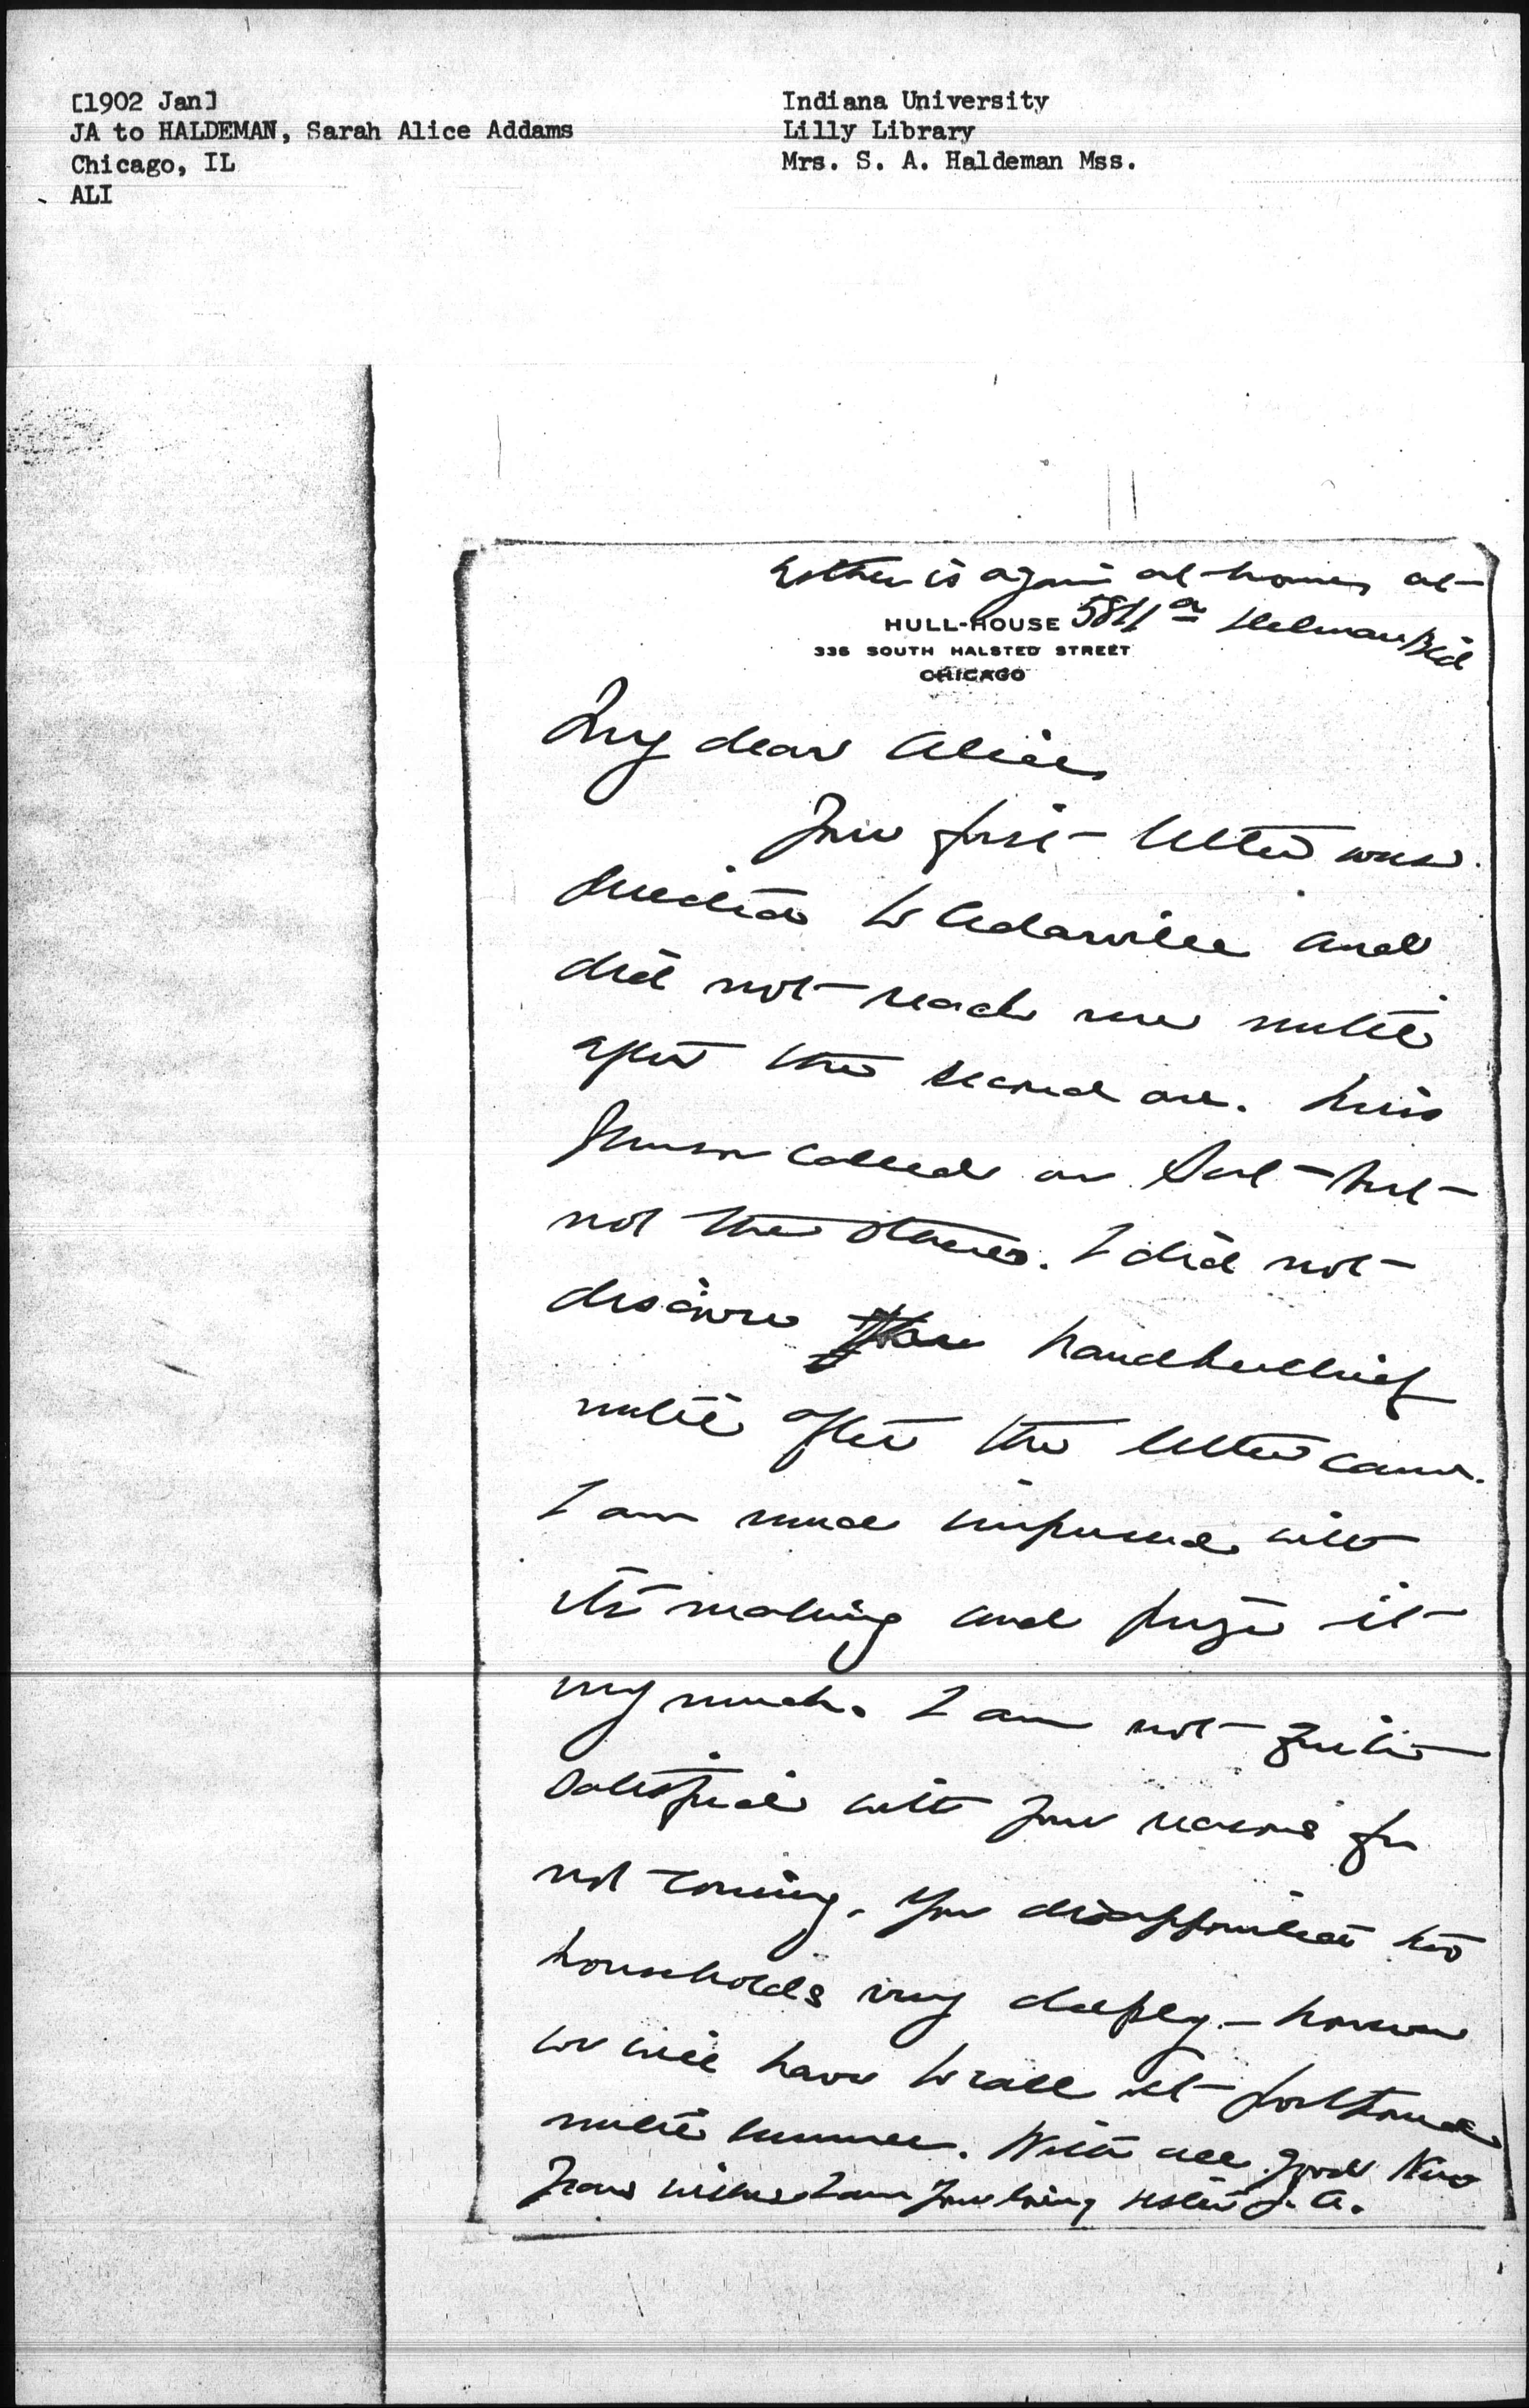 [1902 Jan]
JA to HALDEMAN, Sarah Alice Addams
Chicago, IL
ALI
Indiana University
Lilly Library
Mrs. S. A. Haldeman Mss.
Esther is again at home, at
HULL-HOUSE 5811
335 SOUTH HALSTED STREET
CHICAGO
My dear Alice,
Your first letter was
directed to Cedarville and
did not reach me until
after the second one. Miss
called on Sat but
not the others. I did not
discover the handkerchief
until after the letter came.
I am much impressed with
its making and prize it
very much. I am not quite
satisfied with your reasons for
not coming. You disappointed two
households very deeply — however
we will have to call it postponed
until summer. With all good New
Years wishes I am your loving sister J. A.